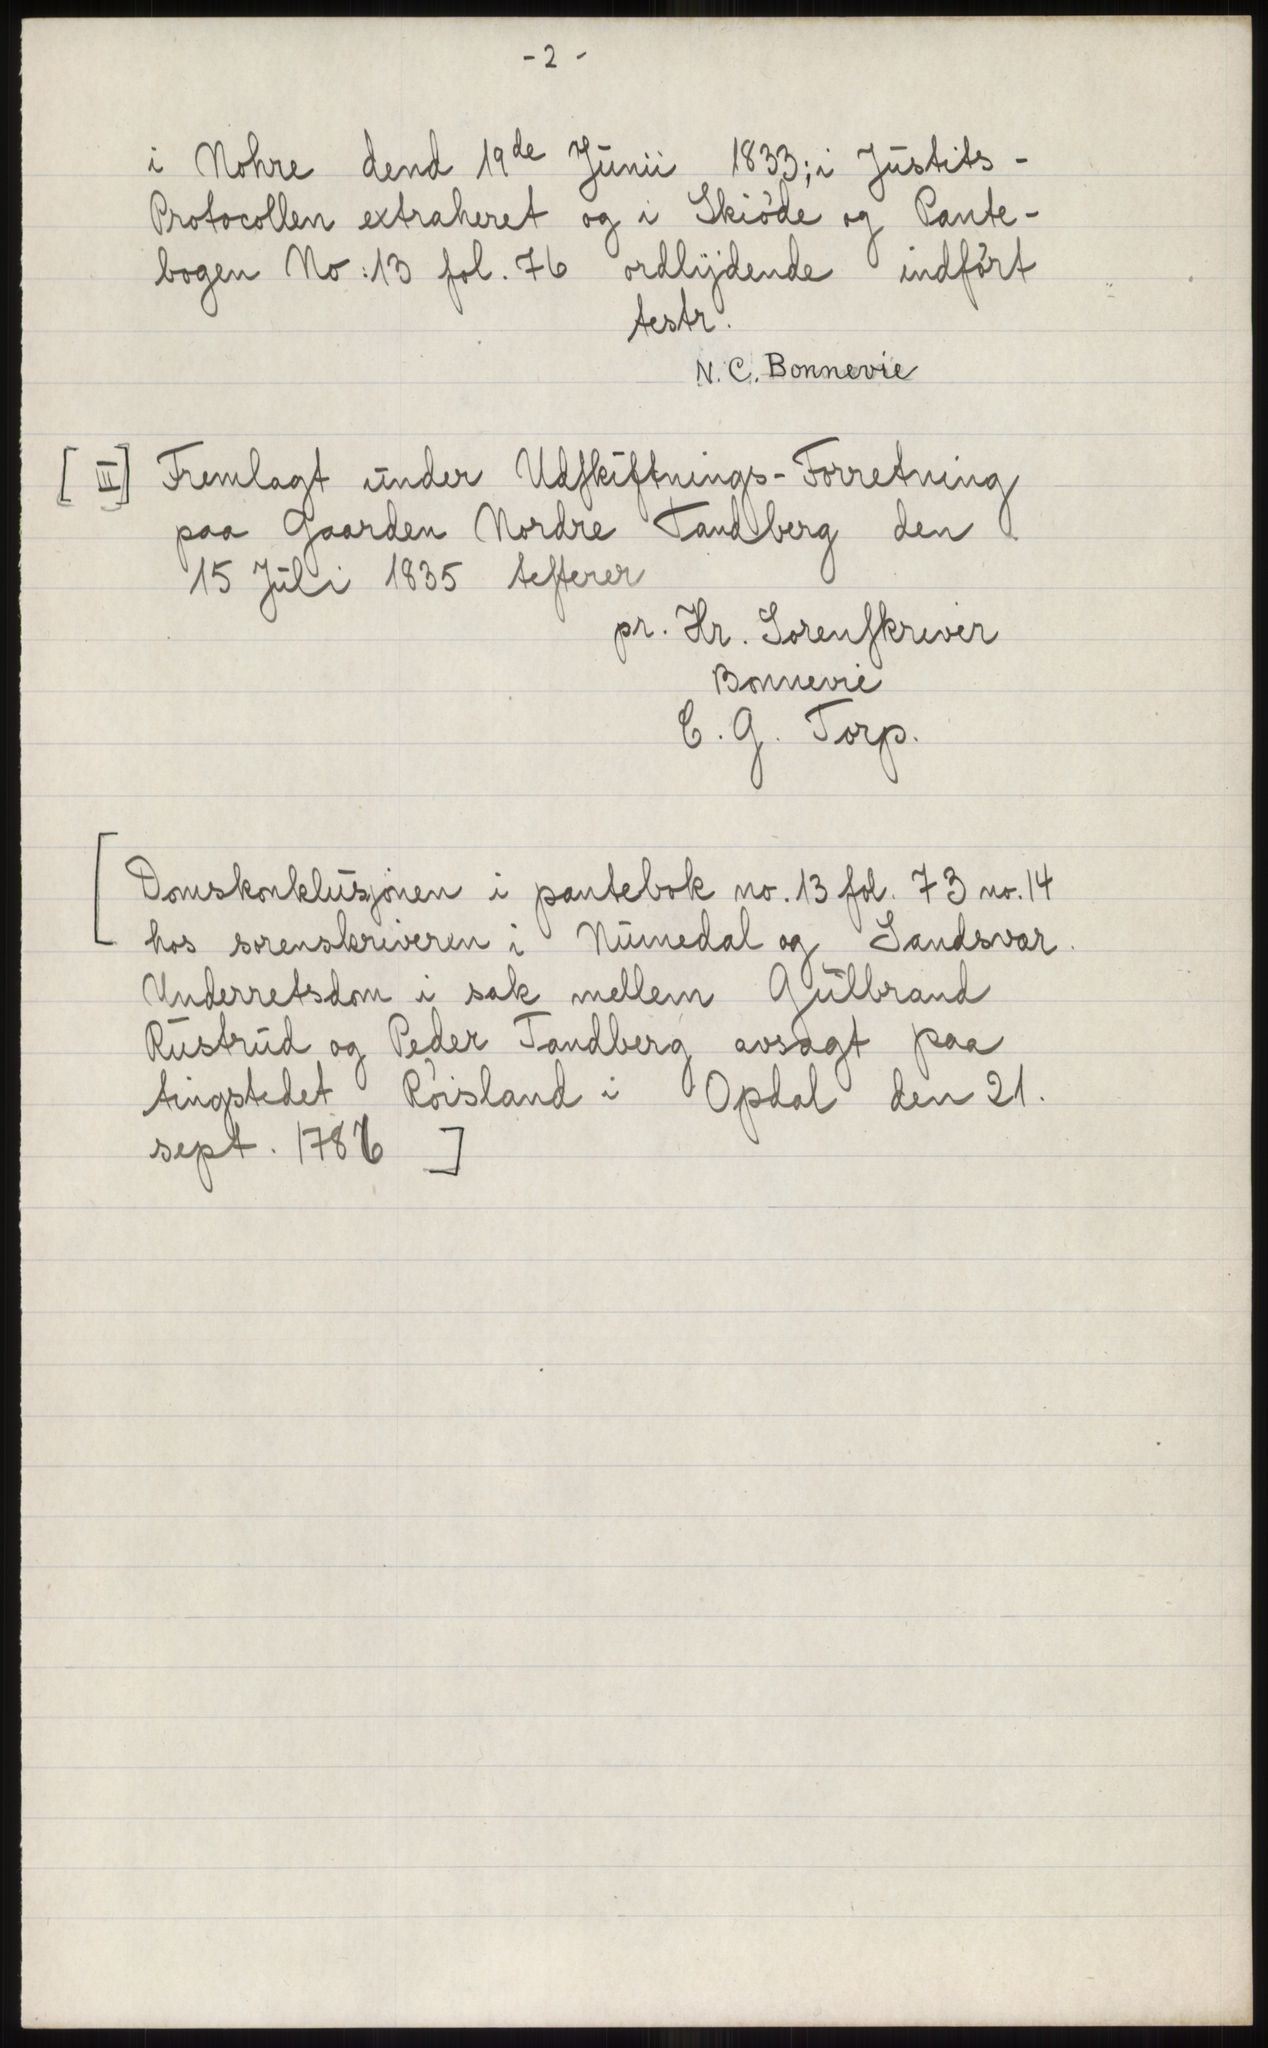 - 2 -
i Nohre dend 19de Junii 1833; i Justits -
Protocollen extraheret og i Skiöde og Pante -
bogen No: 13 fol. 76 ordlijdende indfört
testr.
N. C. Bonnevie
[II] Fremlagt under Udskiftnings - Forretning
paa Gaarden Nordre Tandberg den
15 Juli 1835 testerer
pr. Hr. Sorenskriver
Bonnevie
C. G. Torp.
[Domskonklusjonen i pantebok no. 13 fol. 73 no. 14
hos sorenskriveren i Numedal og Sandsvær.
Underretsdom i sak mellem Gulbrand
Rustrud og Peder Tandberg avsagt paa
tingstedet Röisland i Opdal den 21.
sept. 1786 ]